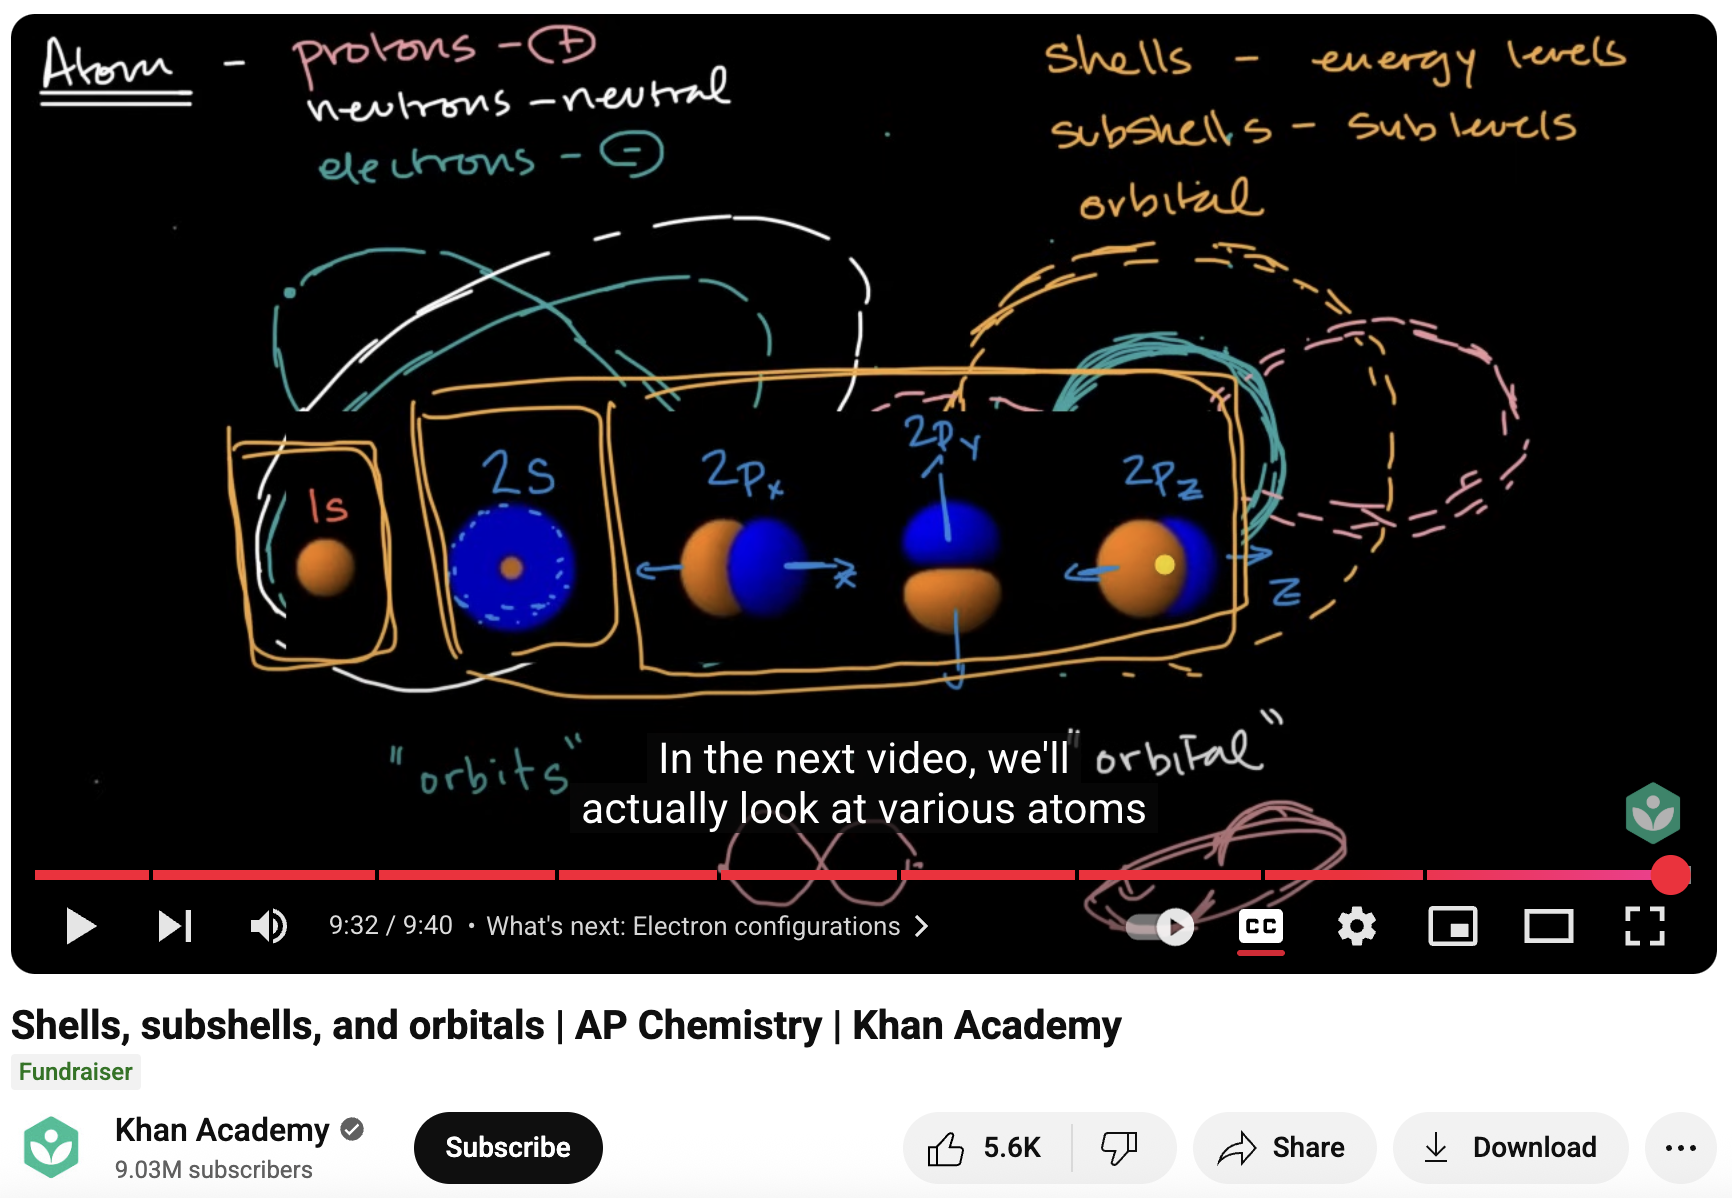 Atom - protons - +
neutrons - neutral
electrons - -
Shells - energy levels
subshells - sublevels
orbital
1s
2s
2px
2py
2pz
x
z
"orbits"
"orbital"
In the next video, we'll
actually look at various atoms
9:32 / 9:40 • What's next: Electron configurations >
CC
Shells, subshells, and orbitals | AP Chemistry | Khan Academy
Fundraiser
Khan Academy
9.03M subscribers
Subscribe
5.6K
Share
Download